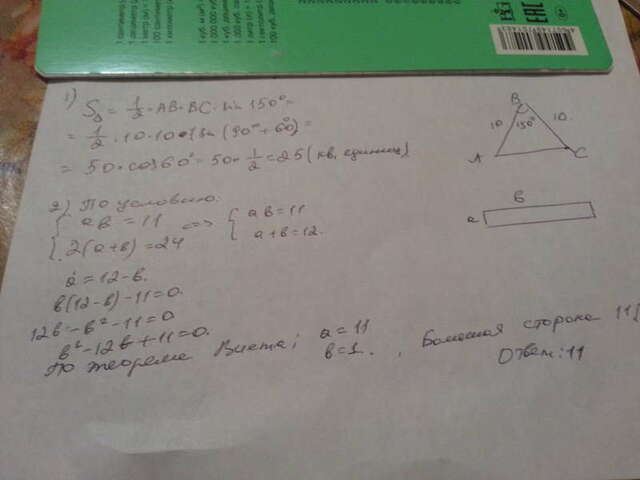 EAC
0+
1)
S∆ = 1/2 · AB · BC · sin 150° =
= 1/2 · 10 · 10 · sin (90° + 60°) =
= 50 · cos 60° = 50 · 1/2 = 25 (кв. единиц)
B
10
150°
10
A
C
2) По условию:
{ ab = 11
{ 2(a+b) = 24
<=>
{ ab = 11
{ a+b = 12.
b
a
a = 12 - b.
b(12-b) - 11 = 0.
12b - b² - 11 = 0
b² - 12b + 11 = 0.
По теореме Виета: a = 11
b = 1.
, Большая сторона 11
Ответ: 11